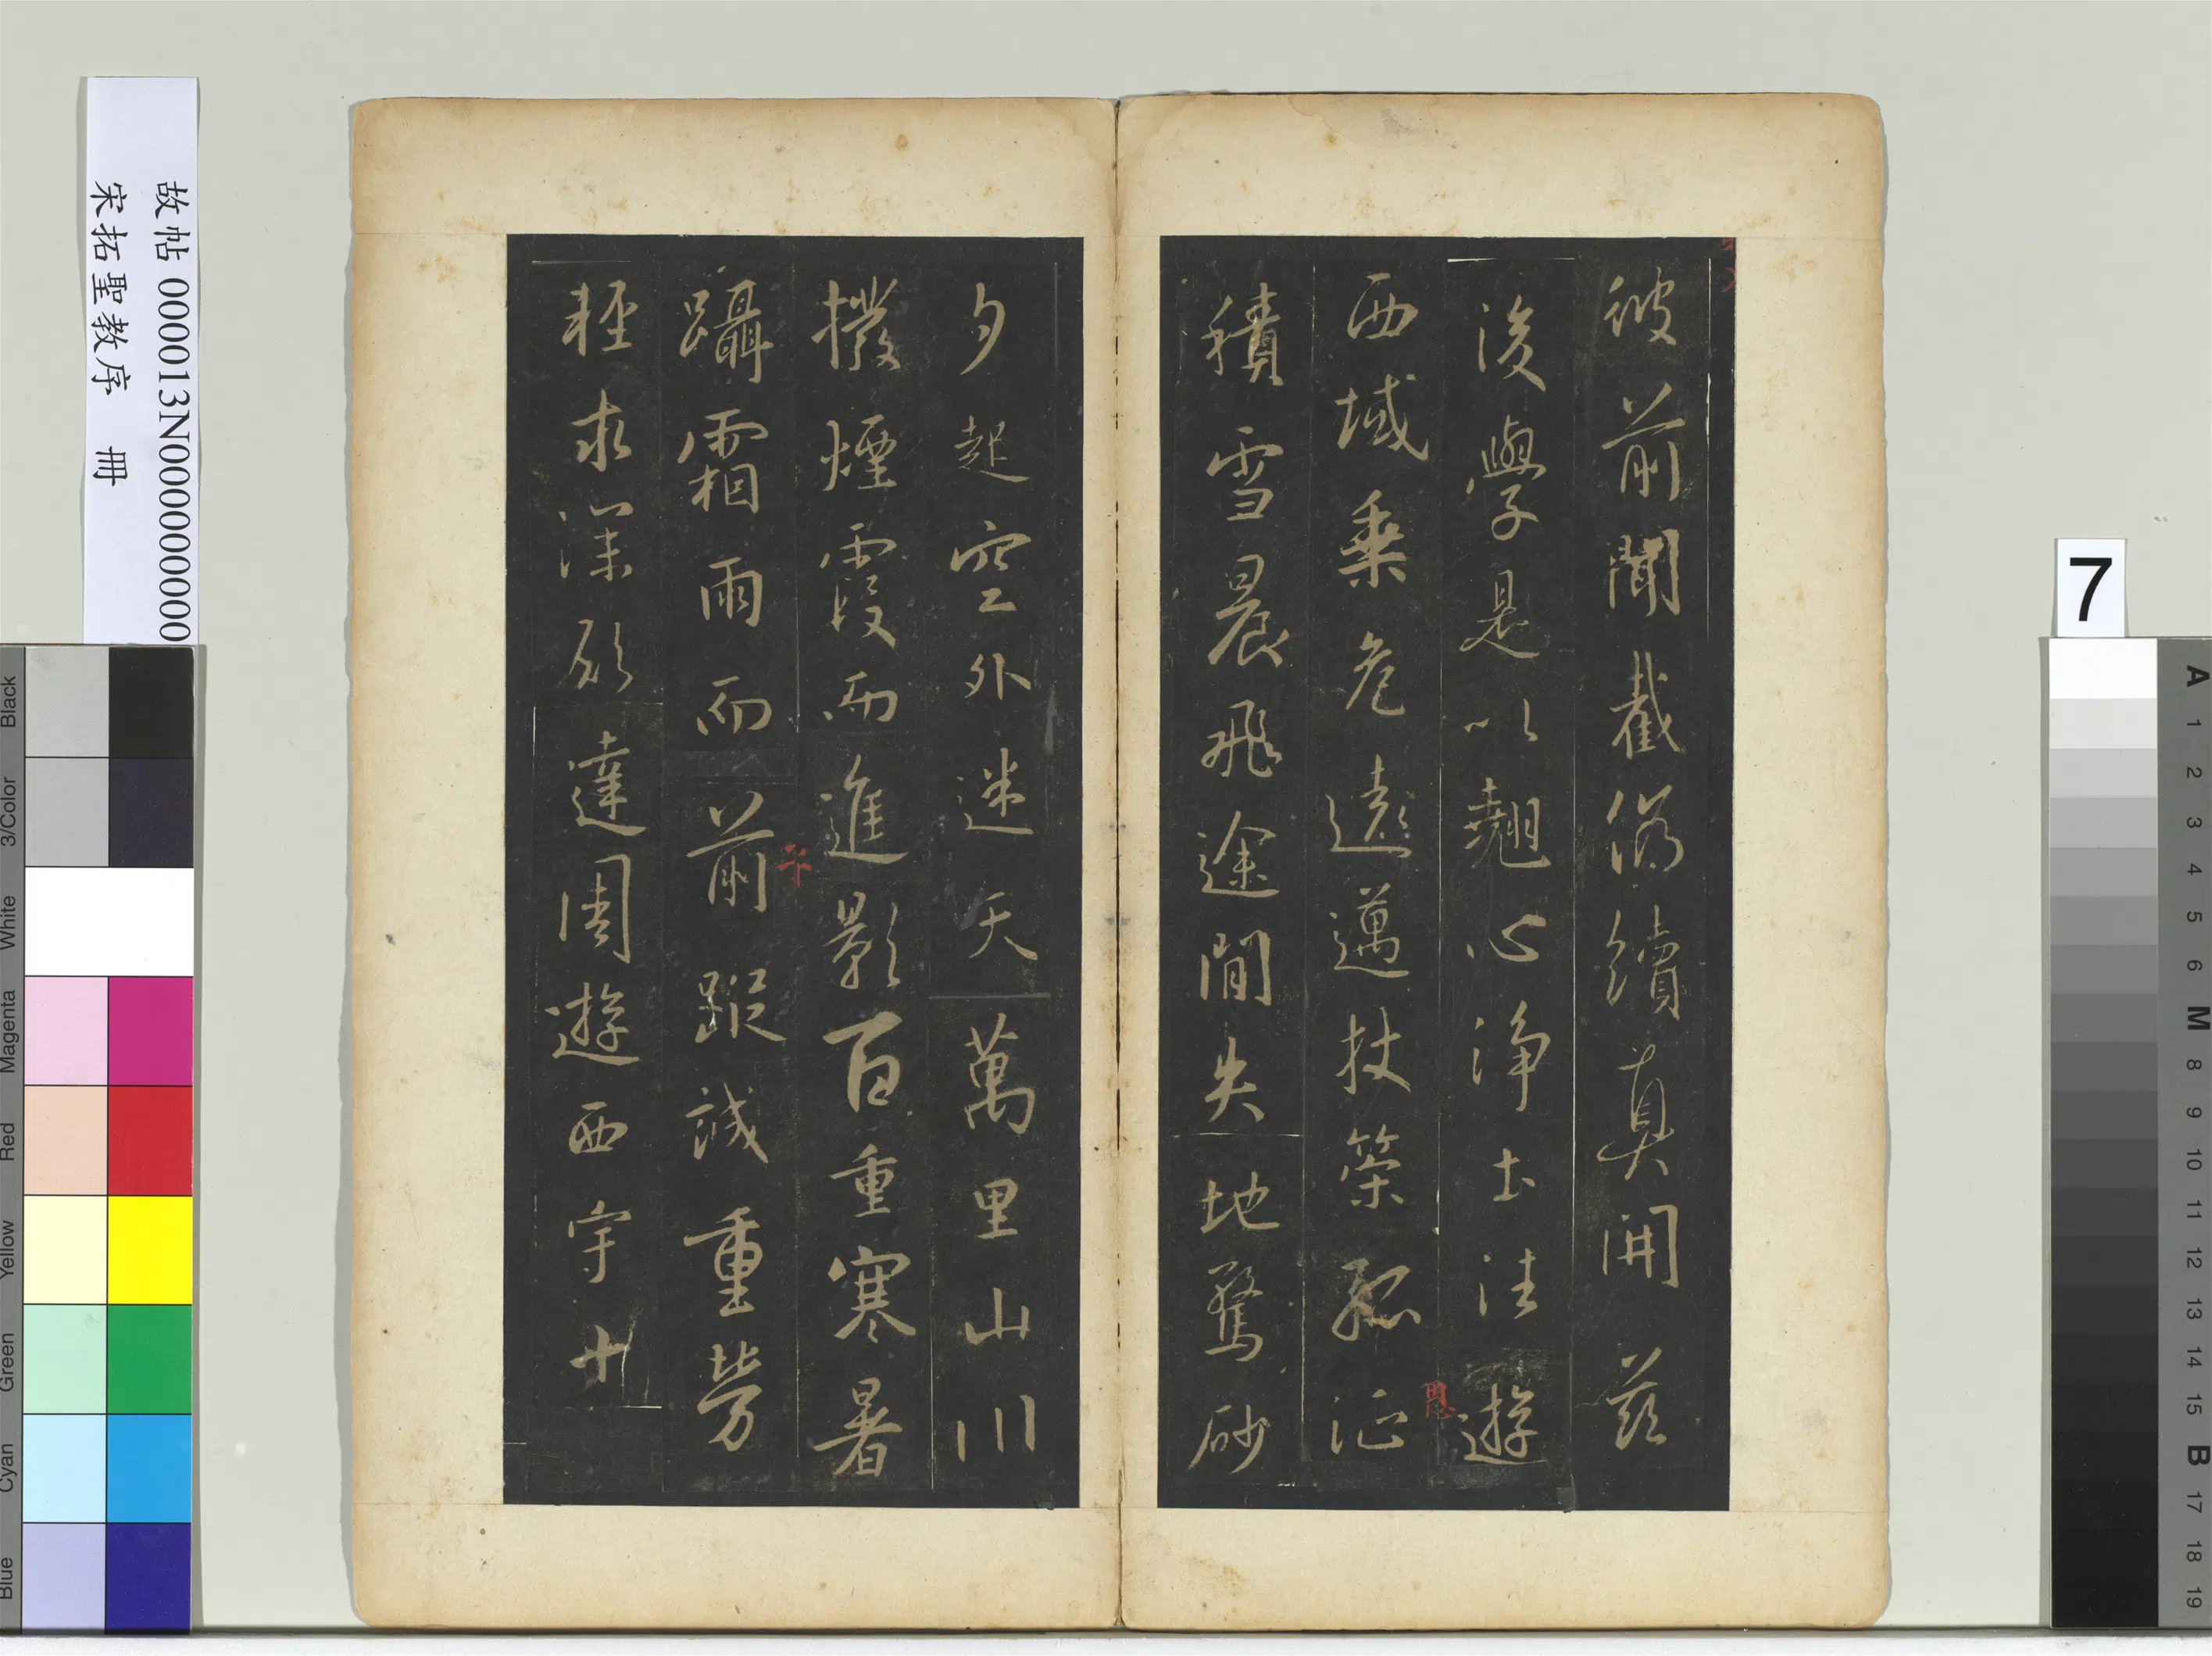 彼前聞截偽續真開茲
後學是以翹心淨土法遊
西域乗危遠邁杖策孤征
積雪晨飛途間失地驚砂
夕起空外迷天萬里山川
撥煙霞而進影百重寒暑
躡霜雨而前蹤誠重勞
輕求深願達周遊西宇十
故帖 000013N000000000
宋拓聖教序 冊
7
Black
3/Color
White
Magenta
Red
Yellow
Green
Cyan
Blue
A 1 2 3 4 5 6 M 8 9 10 11 12 13 14 15 B 17 18 19